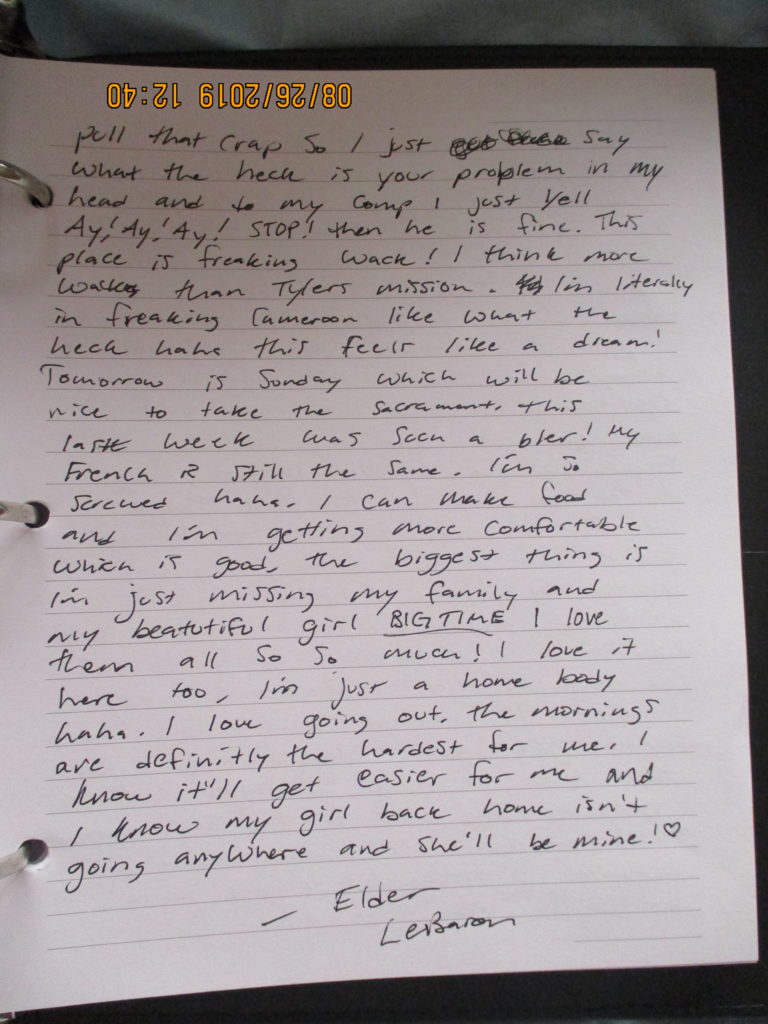 08/26/2019 12:40
pull that crap so I just say
what the heck is your problem in my
head and to my comp I just yell
Ay! Ay! Ay! STOP! then he is fine. This
place is freaking wack! I think more
than Tylers mission. I'm literally
in freaking Cameroon like what the
heck haha this feels like a dream!
Tomorrow is Sunday which will be
nice to take the sacrament. this
last week was such a bler! My
French is still the same. I'm so
screwed haha. I can make food
and I'm getting more comfortable
which is good, the biggest thing is
I'm just missing my family and
my beatutiful girl BIG TIME I love
them all so so much! I love it
here too, I'm just a home body
haha. I love going out. the mornings
are definitly the hardest for me. I
know it'll get easier for me and
I know my girl back home isn't
going anywhere and she'll be mine!♡
— Elder
LeBaron